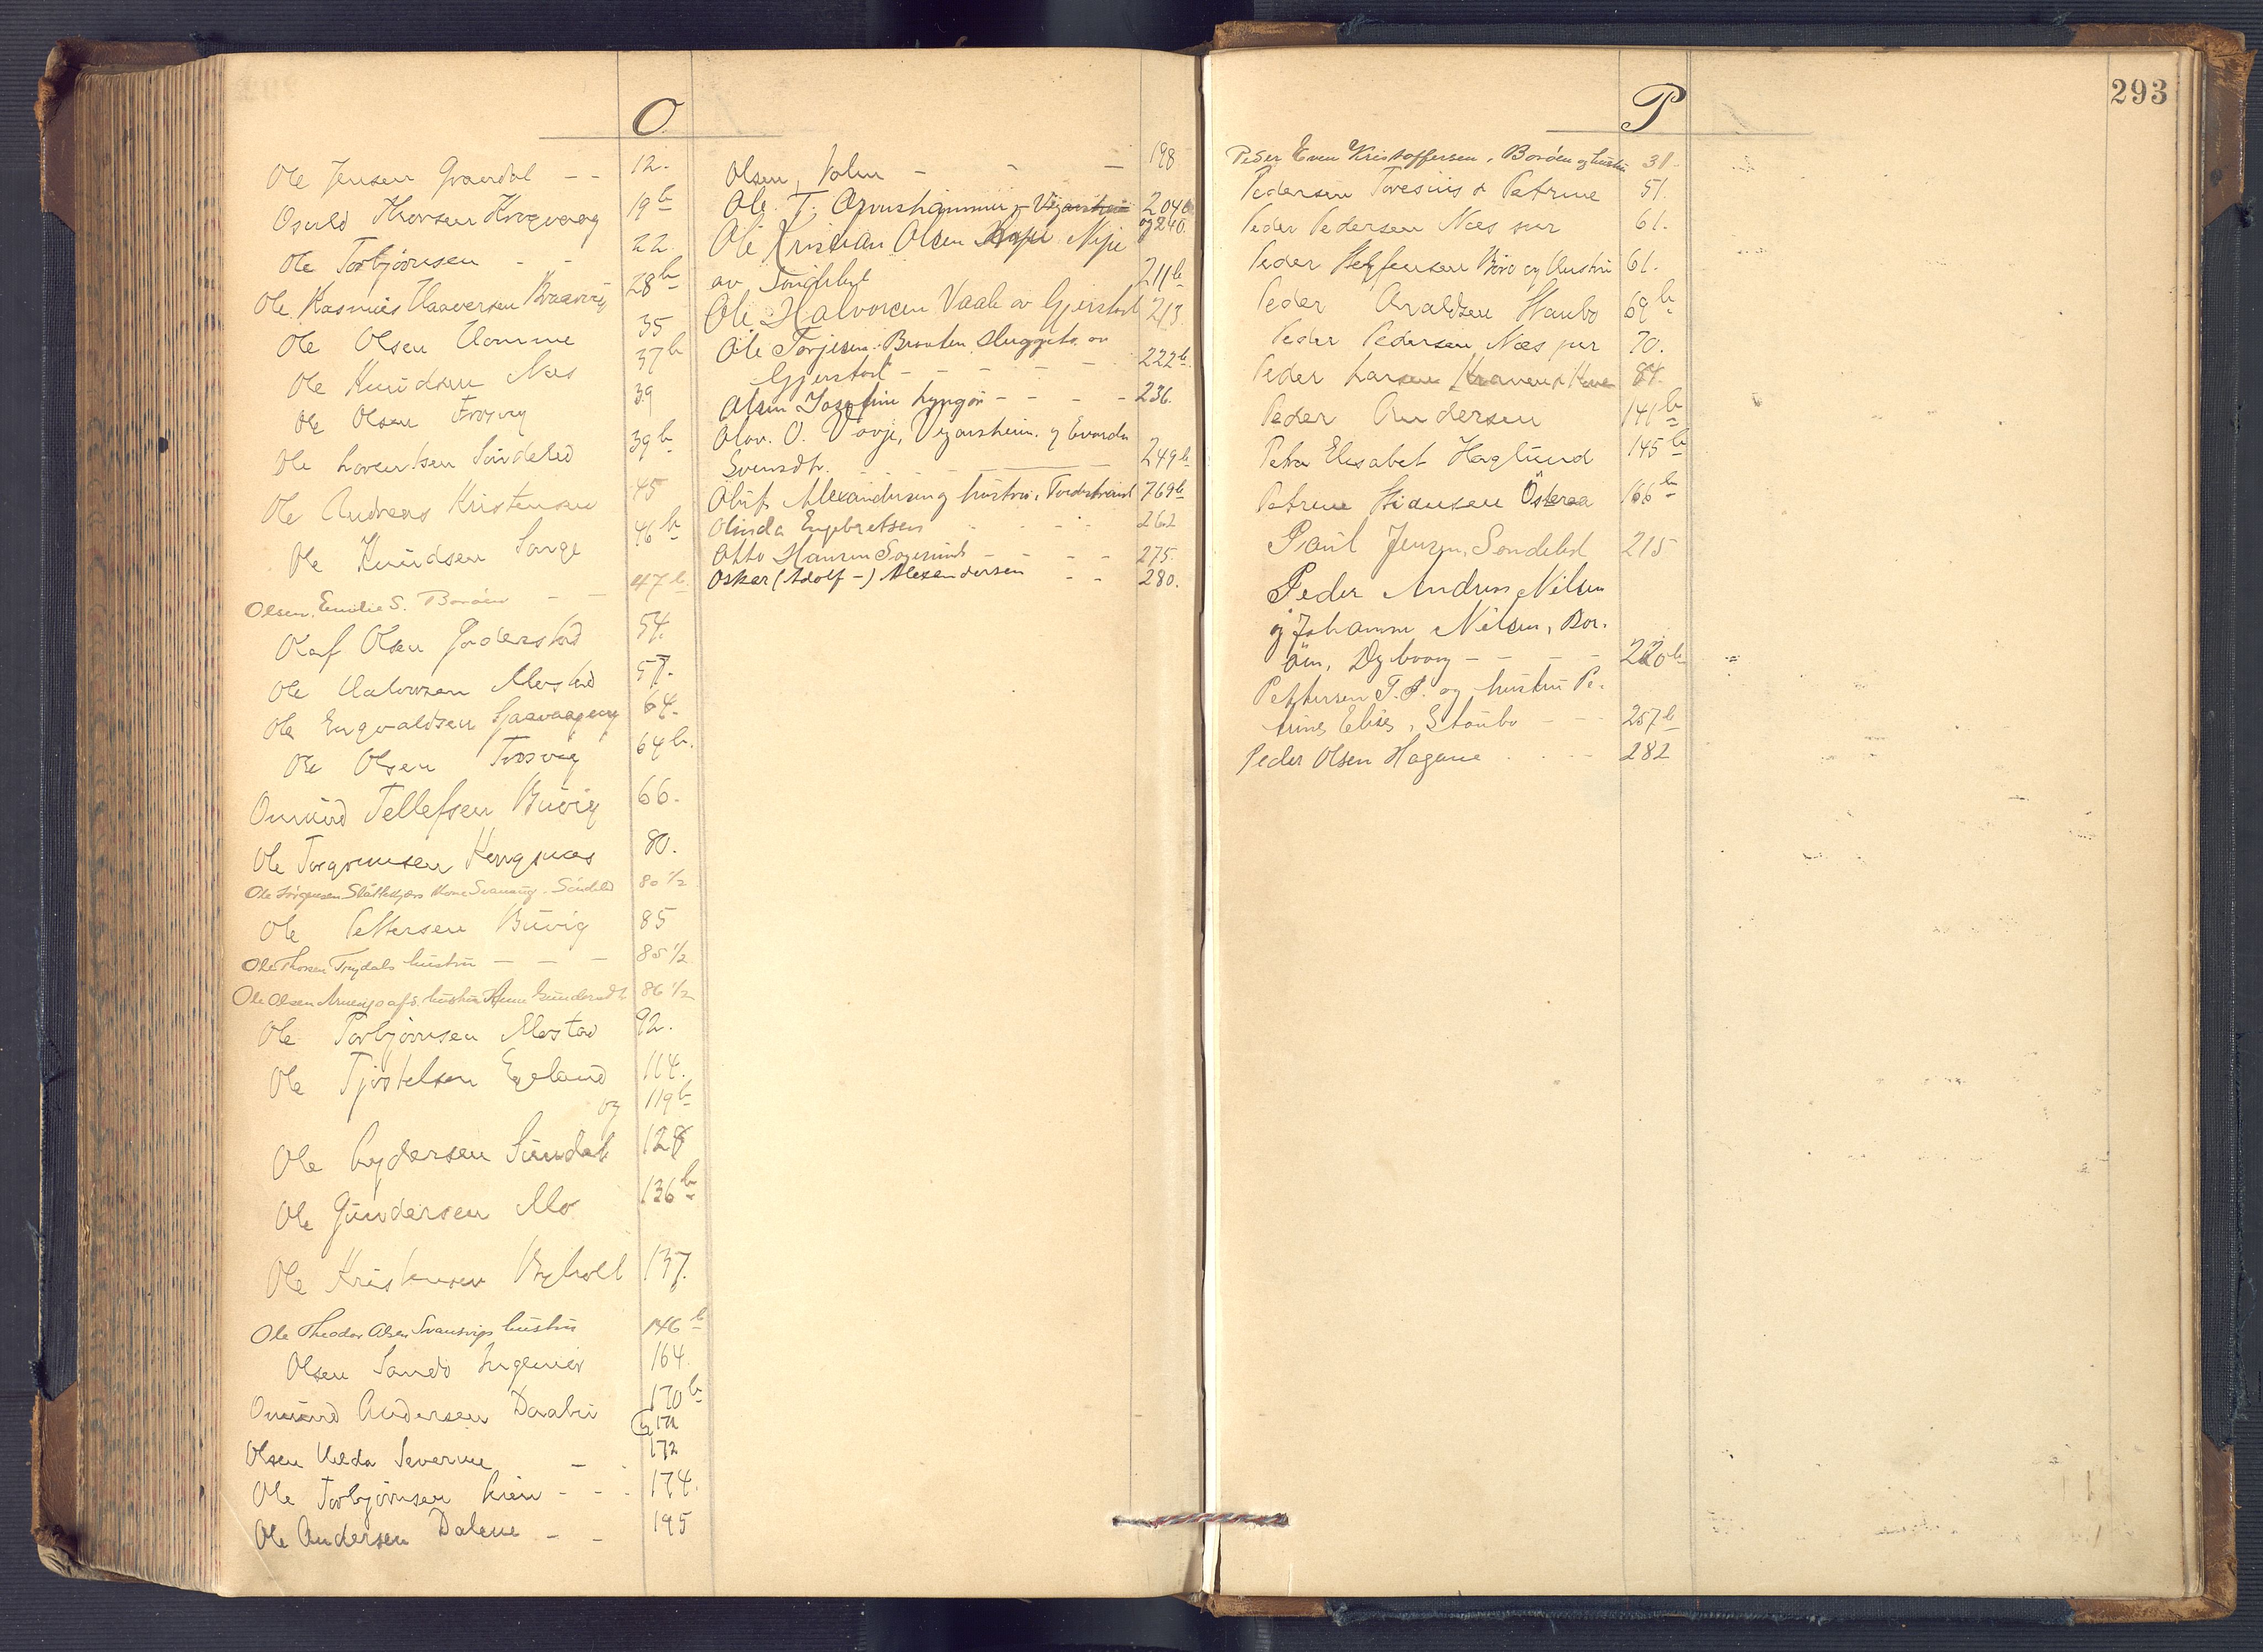 O.
Ole Jensen Grandal - - 12.
Osuld Thorsen Krogvaag 19 b
Ole Torbjörnsen - - 22.
Ole Rasmus Haaversen Braarvig 28 b
Ole Olsen Homme 35
Ole Knudsen Næs 37 b
Ole Olsen Frosvig 39
Ole Lorentsen Söndeled 39 b
Ole Andreas Kristensen 45
Ole Knudsen Songe 46 b
Olsen, Emilie S. Boröen - - 47 b
Olaf Olsen Goderstad 54.
Ole Halvorsen Mostad 57.
Ole Engvaldsen 64.
Ole Olsen Frosvig 64 b.
Omund Tellefsen Buvig 66.
Ole Torgrimsen Kongsnæs 80.
Ole Jörgensen Kone Svanaug - Söndeled 80 1/2
Ole Pettersen Buvig 85
Ole Thorsen Trydals hustru - - - 85 1/2
Ole Olsen hustru Gundersdt. 86 1/2
Ole Torbjörnsen Mostad 92.
Ole Tjöstelsen Egeland 114.
og 119 b
Ole Lydersen Sundet 128
Ole Gundersen Mo 136 b
Ole Kristensen Bylholt 137.
Ole Theodor Olsen Svansvigs hustru 146 b
Olsen Sandö Ingeniör 164.
Omund Andersen Daalei 170 b
171
Olsen Helda Severine - 172
Ole Torbjörnsen Lien - - - 174.
Ole Andersen Dalene - - 195
Olsen, Valen - - - 198
Ole T. Vegarsheim 204 b
og 240.
Ole Kristian Olsen Nipe
av Söndeled 211 b
Ole Halvorsen Vaale av Gjerstad 213
Ole Torjesen Braaten av
Gjerstad - - - - - 222 b
Olsen Josefine Lyngör - - - - 236.
Olav. O. Vovje, Vegarsheim. og Evarda
Svensdtr. 249 b
Oluf Alexandersen og hustru, Tvedestrand 769 b
Olinda Engebretsen - - - - 262
Otto Hansen Sagesund - - - - 275.
Oskar (Adolf -) Alexandersen - - 280.
P
293
Peder Even Kristoffersen, Boröen og hustru 31
Pedersen Toresius & Petrine 51.
Peder Pedersen Næs 61.
Peder Steffensen Borö og Hustru 61.
Peder Araldsen Staubo 69 b
Peder Pedersen Næs jur 70.
Peder Larsen 84.
Peder Andersen 141 b
Petra Elisabet Haglund 145 b
Petrine Hansen Österaa 166 b
Paul Jensen, Sendeled 215
Peder Andreas Nilsen
og Johanne Nilsen, Bor-
öen, Dybvaag - - - - 220 b
Pettersen T. P. og hustru Pe-
trine Elise, Staubo - - - 257 b
Peder Olsen Hagane - - - 282